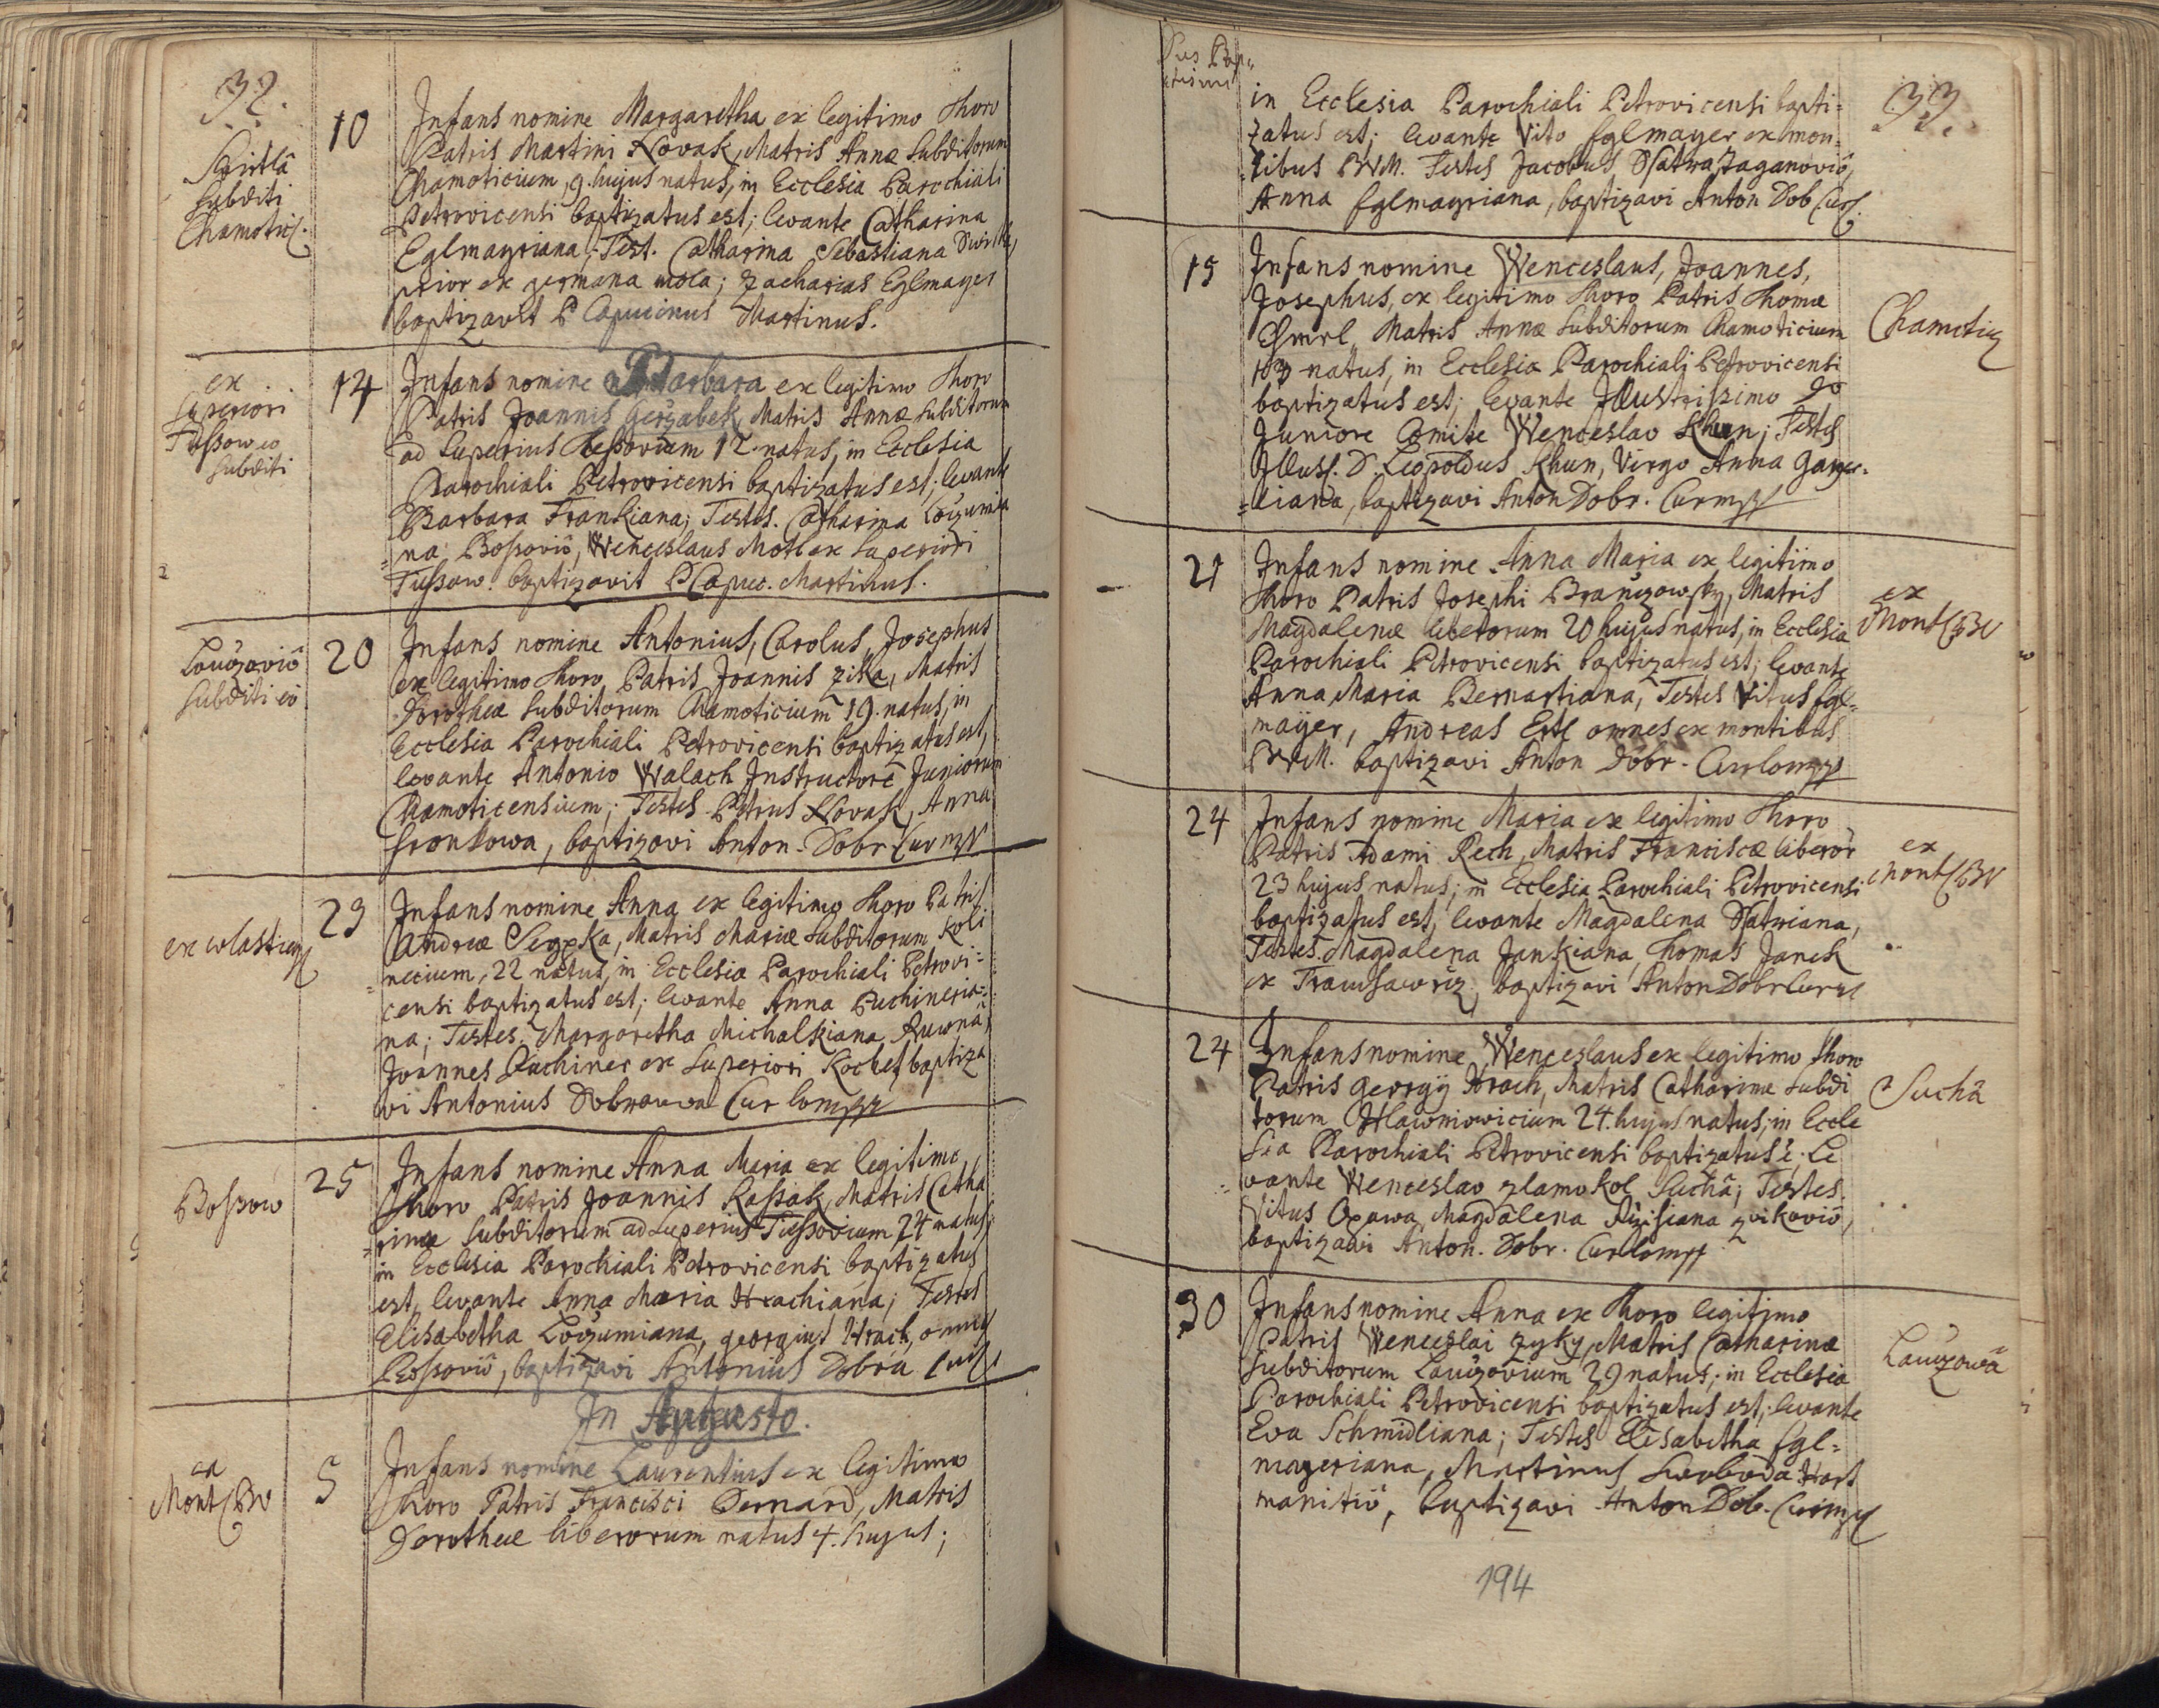 32.
Subditi
Chamotic.
10
Infans nomine Margaretha ex legitimo thoro
Patris Martini Novak, Matris Annæ Subditorum
Chamoticium, 9. hujus natus, in Ecclesia Parochiali
Petrovicensi baptizatus est; levante Catharina
Eglmayriana; Test. Catharina Sebastiana
prior ex germana mola; Zacharias Eglmayer
baptizavit P Capucinus Martinus.
ex
superiori
Tussow eo
subditi
14
Infans nomine Barbara ex legitimo thoro
Patris Joannis Geržabek, Matris Annæ Subditorum
ad Superius Tessovium 12. natus, in Ecclesia
Parochiali Petrovicensi baptizatus est; levante
Barbara Frankiana; Testes. Catharina Loizumia
=na Bossoviô, Wenceslaus Motl ex Superiori
Tussow. baptizavit P Capuc. Martinus.
Lauzoviô
Subditi eô
20
Infans nomine Antonius, Carolus, Josephus
ex legitimo thoro Patris Joannis Zika, Matris
Dorotheæ Subditorum Chamoticium 19. natus, in
Ecclesia Parochiali Petrovicensi baptizatus est,
levante Antonio Walach Instructore Juniorum
Chamoticensium; Testes Petrus Novak, Anna
baptizavi Anton. Dobr.
ex wlasticz
23
Infans nomine Anna ex legitimo thoro Patris
Andreæ Matris Mariæ Subditorum Koli
=necium, 22 natus, in Ecclesia Parochiali Petrovi=
censi baptizatus est; levante Anna Puchineria=
na; Testes. Margaretha Michalkiana Ruwna,
Joannes Puchiner ex Superiori Kochet baptiza
vi Antonius Dobrauwa
Bossow
25
Infans nomine Anna Maria ex legitimo
thoro Patris Joannis Kassak, Matris Catha
=rinæ Subditorum ad Superius Tussovium, 24 natus,
in Ecclesia Parochiali Petrovicensi baptizatus
est, levante Anna Maria Hrachiana; Testes
Elisabetha Loizumiana, Georgius Hrach, omnes
Bossoviô, baptizavi Antonius Dobra
In Augusto.
ex
Mont BV
5
Infans nomine Laurentius ex legitimo
thoro Patris Francisci Bernard, Matris
Dorotheæ liberorum natus 4. hujus;
Dies Bap=
tismi
33.
in Ecclesia Parochiali Petrovicensi bapti=
zatus est; levante Vito Eglmayer ex mon=
=tibus BVM. Testes Jacobus Satra Zaganoviô,
Anna Eglmayriana, baptizavi Anton Dob
15
Infans nomine Wenceslaus, Joannes,
Josephus, ex legitimo thoro Patris Thomæ
Chmrl, Matris Annæ Subditorum Chamoticium
13 natus, in Ecclesia Parochiali Petrovicensi
baptizatus est; levante Illustrissimo Do
Juniore Comite Wenceslao Khun; Testes
Illuss. D. Leopoldus Khun, Virgo Anna
=liana, baptizavi Anton Dobr.
Chamotic
21
Infans nomine Anna Maria ex legitiimo
thoro Patris Josephi Branizowsky, Matris
Magdalenæ liberorum 20 hujus natus, in Ecclesia
Parochiali Petrovicensi baptizatus est; levante
Anna Maria Bernartiana, Testes Vitus Egl=
mayer, Andreas Ertl omnes ex montibus
BVM. baptizavi Anton Dobr.
ex
Mont BV
24
Infans nomine Maria ex legitimo thoro
Patris Adami Rech, Matris Franciscæ liberor
23 hujus natus; in Ecclesia Parochiali Petrovicensi
baptizatus est, levante Magdalena Satriana,
Testes. Magdalena Jankiana, Thomas Janek
ex baptizavi Anton Dobr
ex
Mont BV
24
Infans nomine Wenceslaus ex legitimo thoro
Patris Georgÿ Hrach, Matris Catharinæ Subdi
torum Hlawniowicium 24. hujus natus, in Eccle
sia Parochiali Petrovicensi baptizatus ê; Le
vante Wenceslao Suchâ; Testes.
Vitus Opawa, Magdalena zvikoviô,
baptizavi Anton. Dobr.
Suchâ
30
Infans nomine Anna ex thoro legitimo
Patris Wenceslai Zyky, Matris Catharinæ
Subditorum Lauzovium 29 natus; in Ecclesia
Parochiali Petrovicensi baptizatus est; levante
Eva Schmidliana; Testes Elisabetha Egl=
mayeriana, Martinus Swoboda Hart
manitiô, baptizavi Anton Dob.
Lauzowâ
194